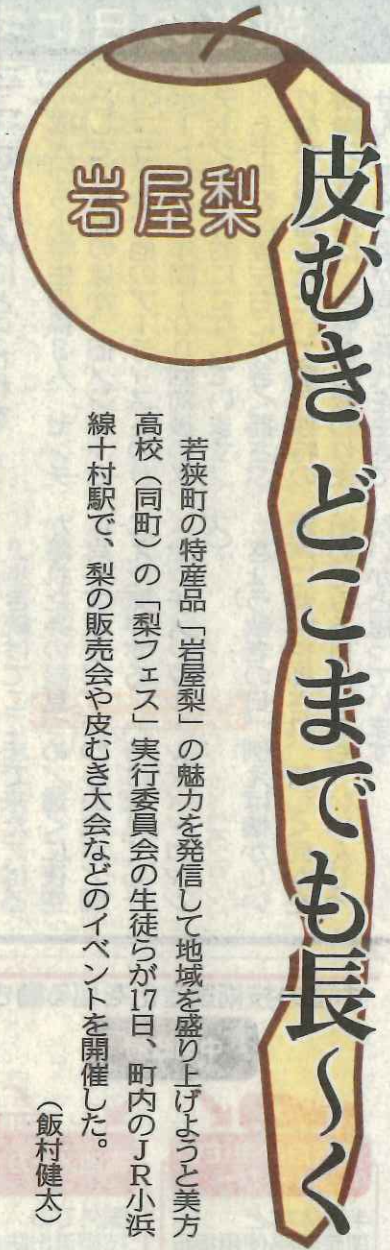 岩屋梨
皮むき どこまでも長〜く
若狭町の特産品「岩屋梨」の魅力を発信して地域を盛り上げようと美方
高校（同町）の「梨フェス」実行委員会の生徒らが17日、町内のJR小浜
線十村駅で、梨の販売会や皮むき大会などのイベントを開催した。
（飯村健太）